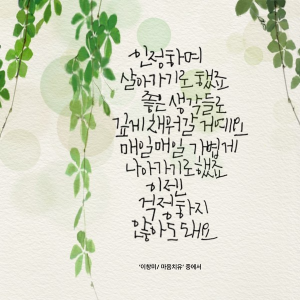 인정하며
살아가기로 했죠
좋은 생각들로
깊게 채워갈 거예요
매일매일 가볍게
나아가기로 했죠
이젠
걱정하지
않아도 돼요
'이창미/ 마음치유' 중에서